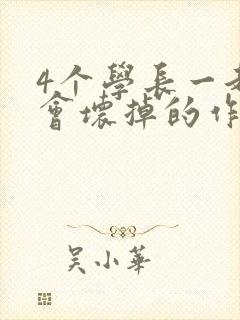 4个學長一
會壞掉的作
吴小華